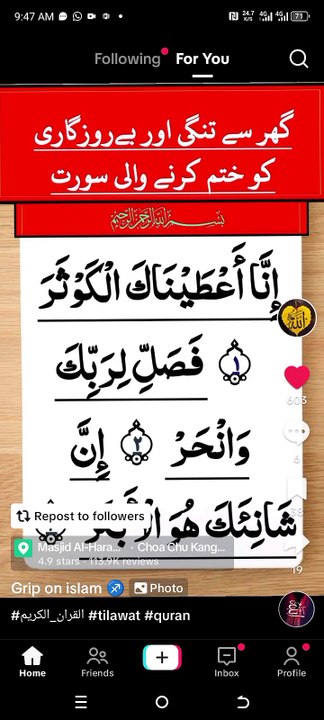 9:47 AM
24.7 K/S 4G 4G 71
Following For You
گھر سے تنگی اور بےروزگاری
کو ختم کرنے والی سورت
بسم الله الرحمن الرحيم
إِنَّا أَعْطَيْنَاكَ الْكَوْثَرَ
١ فَصَلِّ لِرَبِّكَ
وَانْحَرْ ٢ إِنَّ
شَانِئَكَ هُوَ الْأَبْتَرُ
603
6
38
19
Repost to followers
Masjid Al-Hara... · Choa Chu Kang...
4.9 stars · 113.9K reviews
Grip on islam Photo
#القران_الكريم #tilawat #quran
Home Friends Inbox Profile